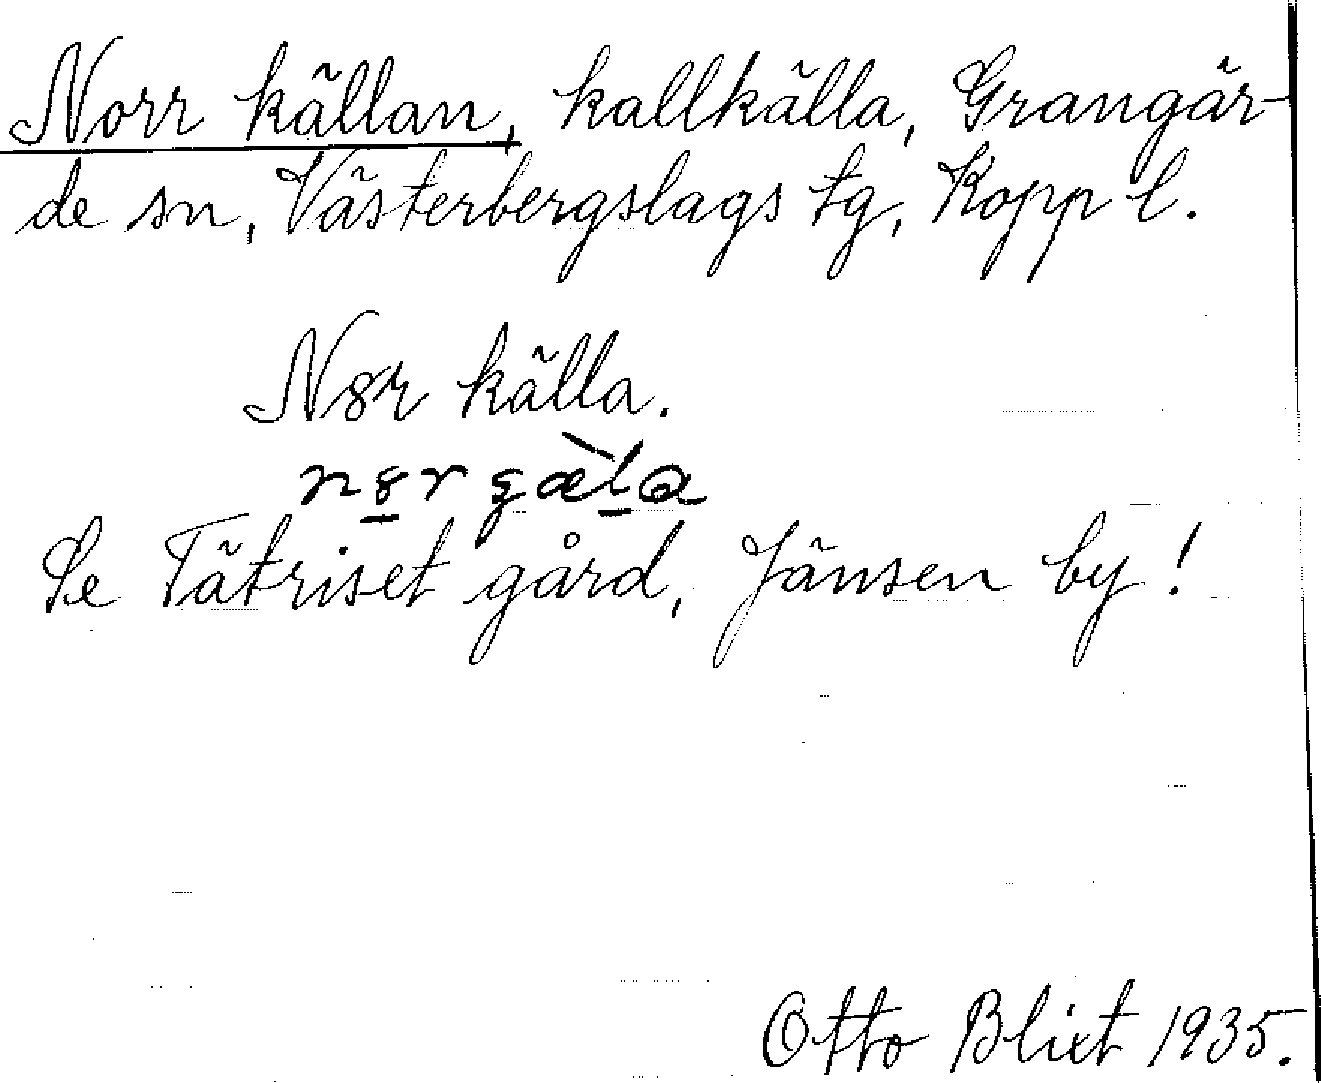 Norr källan, kallkälla, Grangär-
de sn, Västerbergslags tg, Kopp l.
Nȣr källa.
nȣr çæ̀la
Se Tätriset gård, Jänsen by!
Otto Blixt 1935.